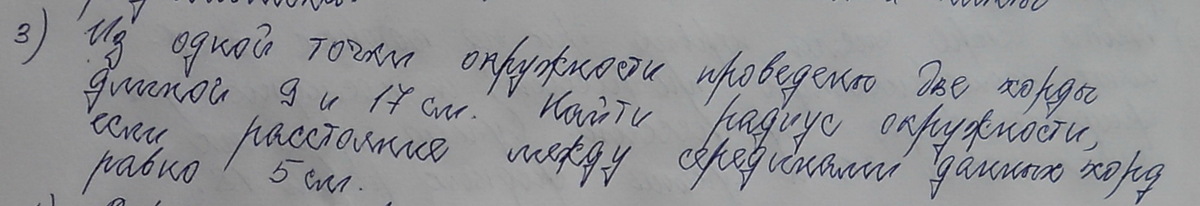 3) Из одной точки окружности проведены две хорды
длиной 9 и 17 см. Найти радиус окружности,
если расстояние между серединами данных хорд
равно 5 см.